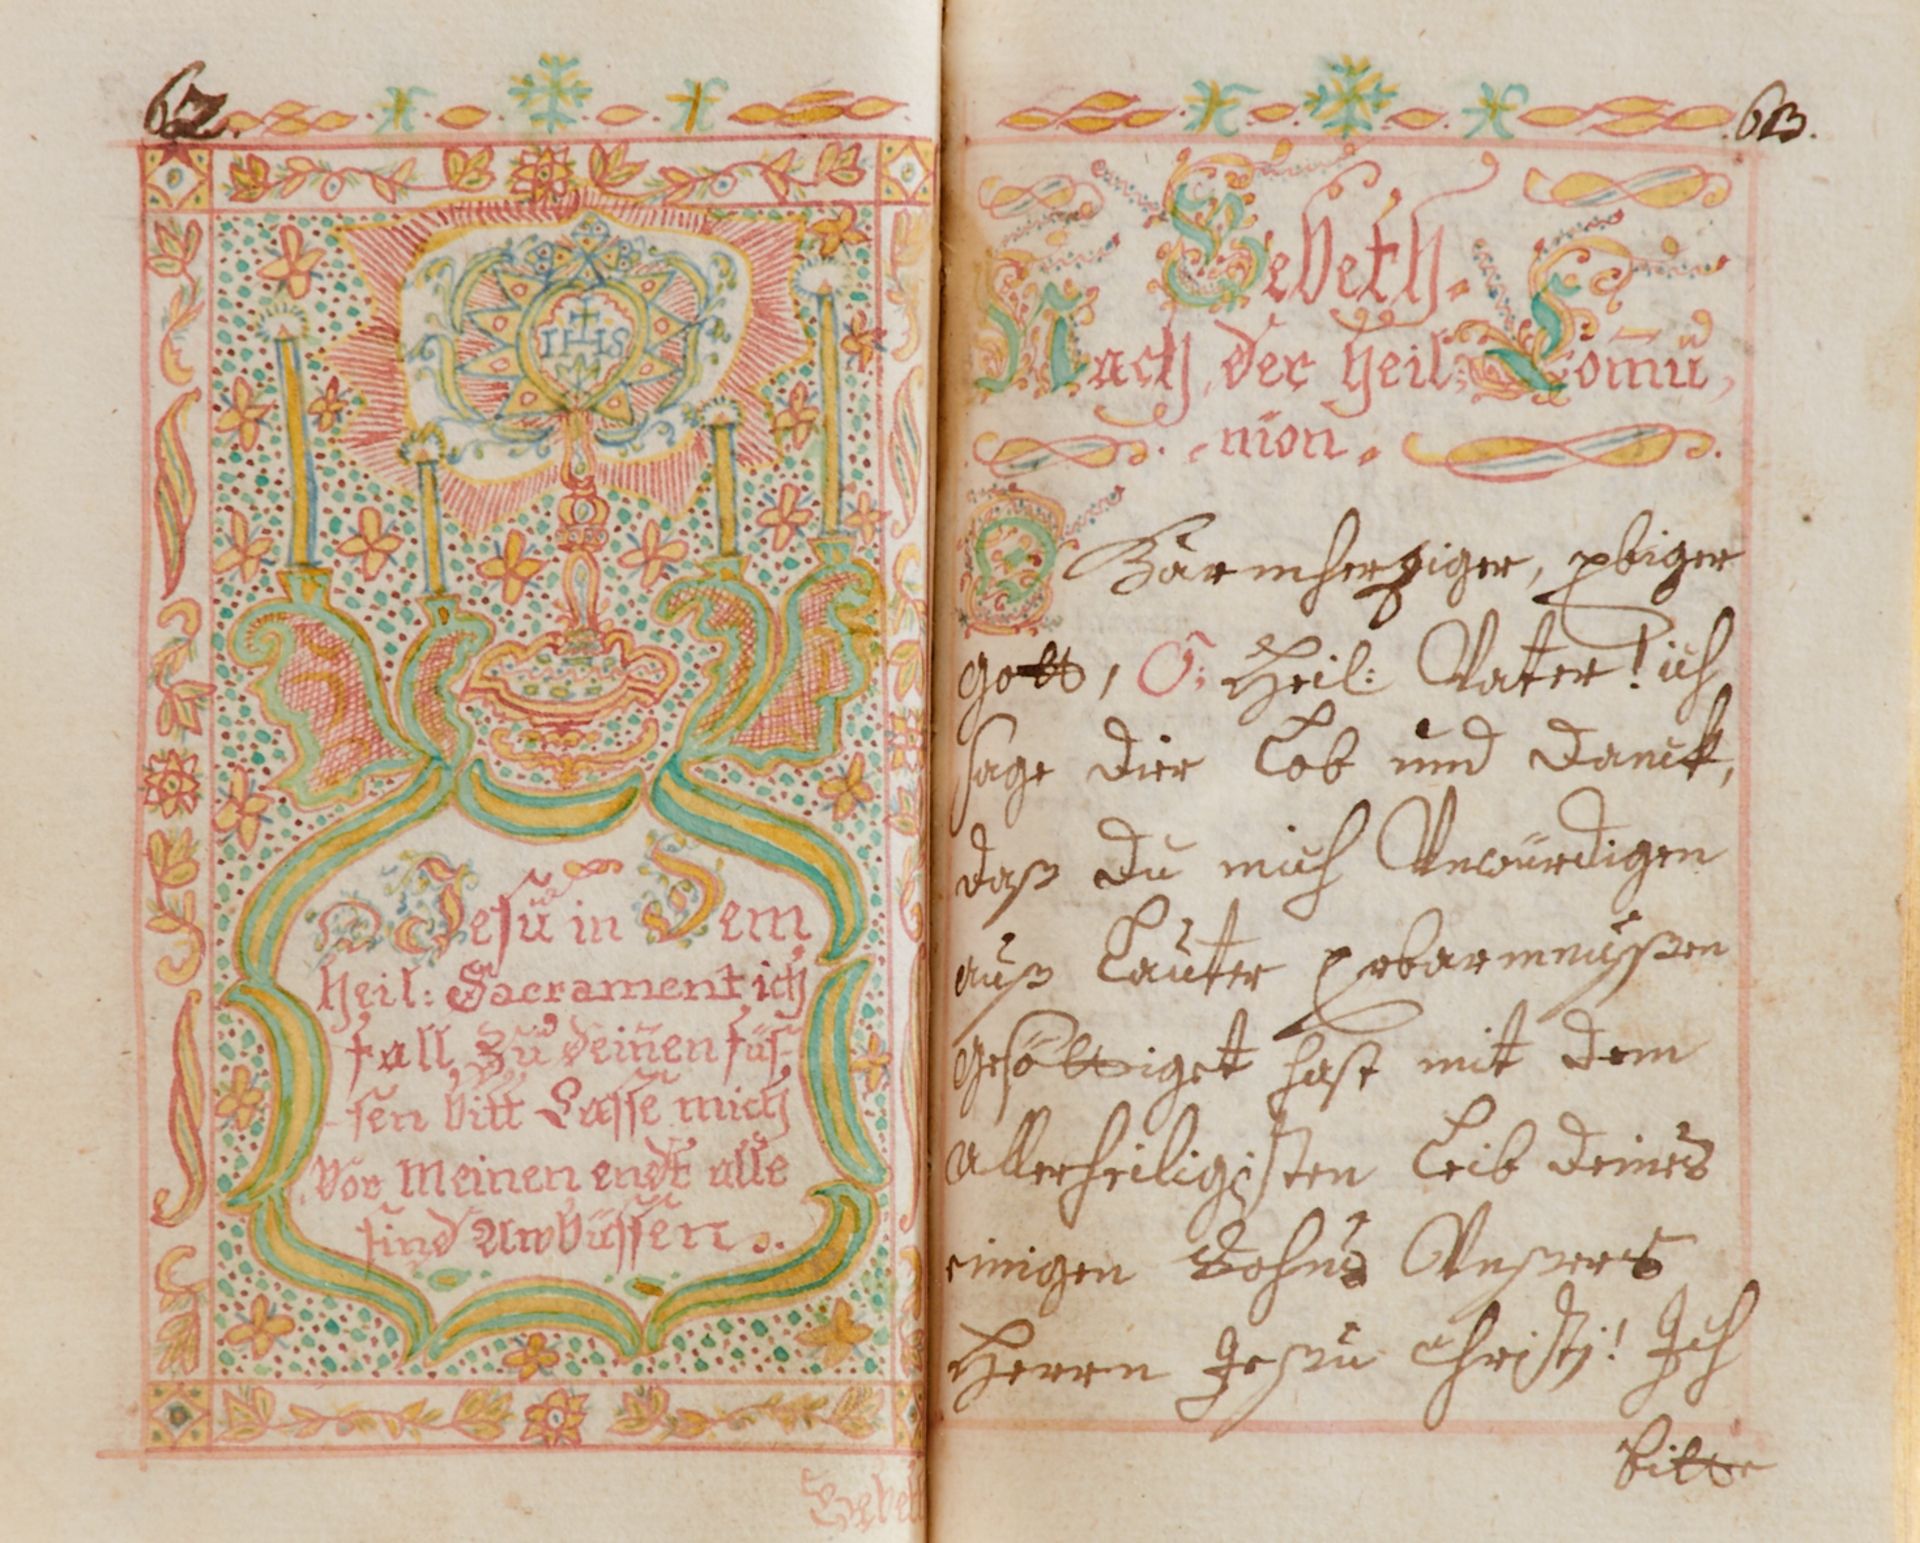 62.
IHS
O Jesu in Dem
heil: Sacrament ich
fall zu deinen füs-
sen bitt Lasse mich
Vor meinen endt alle
sind Abbüssen.
Gebet
63.
Gebeth
Nach der heil: Com̄u
nion
O Barmherziger, ewiger
gott, O: Heil: Vatter! ich
sage dier Lob und Danck,
daß du mich Unwürdigen
auß Lauter Erbarmnußen
gesättiget hast mit dem
allerheiligisten Leib deines
einigen Sohns Unßers
Herrn Jeßu Christj! Ich
bitte